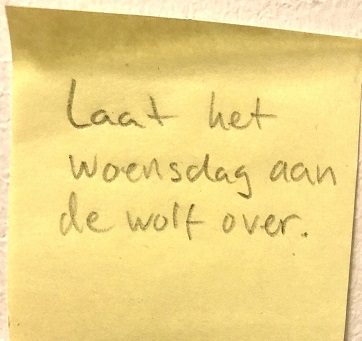 Laat het
woensdag aan
de wolf over.